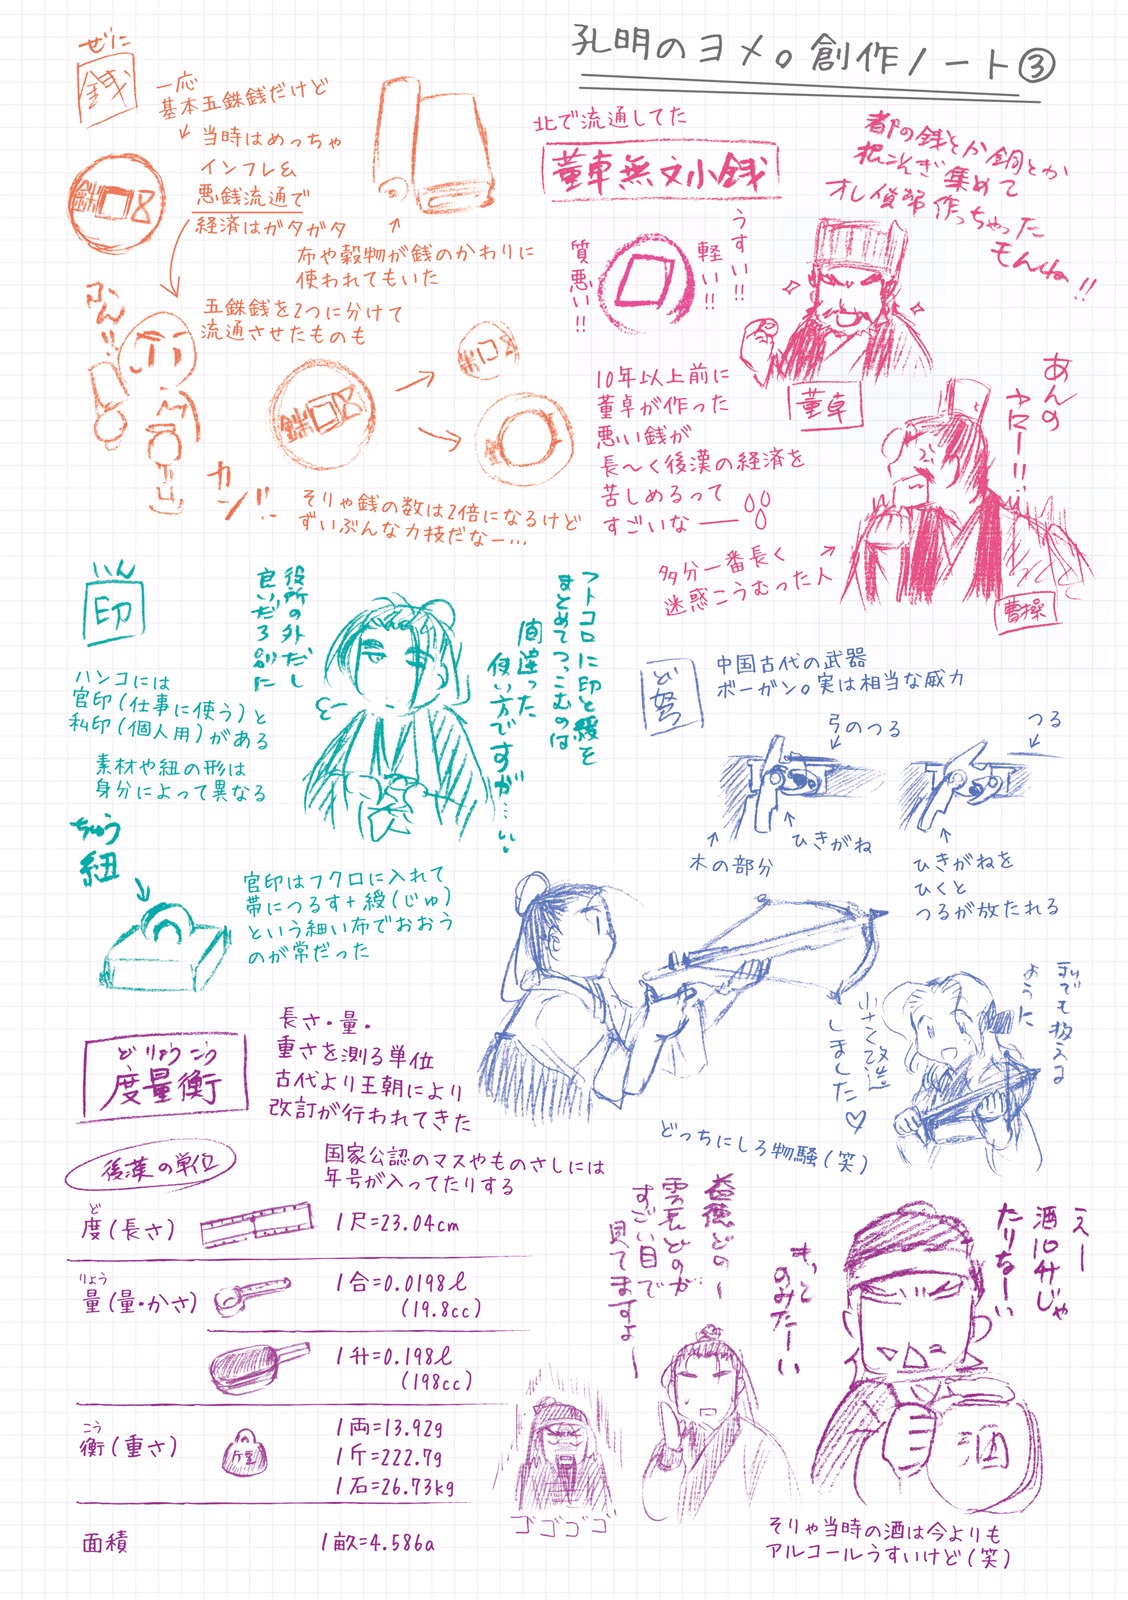 孔明のヨメ。創作ノート③
ぜに
銭
一応
基本五銖銭だけど
当時はめっちゃ
インフレ&
悪銭流通で
経済はガタガタ
銖 五
布や穀物が銭のかわりに
使われてもいた
五銖銭を2つに分けて
流通させたものも
かん!!
カン!!
そりゃ銭の数は2倍になるけど
ずいぶんな力技だなー…
北で流通してた
董卓無文小銭
都の銭とか銅とか
根こそぎ集めて
オレ貨幣作っちゃった
もんね!!
うすい!!
軽い!!
質悪い!!
董卓
10年以上前に
董卓が作った
悪い銭が
長〜く後漢の経済を
苦しめるって
すごいなー
あんの
ヤロー!!
多分一番長く
迷惑こうむった人
曹操
いん
印
ハンコには
官印(仕事に使う)と
私印(個人用)がある
素材や紐の形は
身分によって異なる
役所の外だし
良いだろ別に
フトコロに印と綬を
まとめてつっこむのは
間違った
使い方ですが…
ちゅう
紐
官印はフクロに入れて
帯につるす+綬(じゅ)
という細い布でおおう
のが常だった
ど
弩
中国古代の武器
ボーガン。実は相当な威力
弓のつる
つる
ひきがね
木の部分
ひきがねを
ひくと
つるが放たれる
私でも扱える
ように
小さく改造
しました♡
どっちにしろ物騒(笑)
どりょうこう
度量衡
長さ・量・
重さを測る単位
古代より王朝により
改訂が行われてきた
後漢の単位
国家公認のマスやものさしには
年号が入ってたりする
ど
度(長さ)
1尺=23.04cm
りょう
量(量・かさ)
1合=0.0198ℓ
(19.8cc)
1升=0.198ℓ
(198cc)
こう
衡(重さ)
1両=13.92g
1斤=222.7g
1石=26.73kg
面積
1畝=4.586a
益徳どのー
雲長どのが
すごい目で
見てますよー
ゴゴゴゴ
えー
酒10升じゃ
たりなーい
もっと
のみたーい
酒
そりゃ当時の酒は今よりも
アルコールうすいけど(笑)